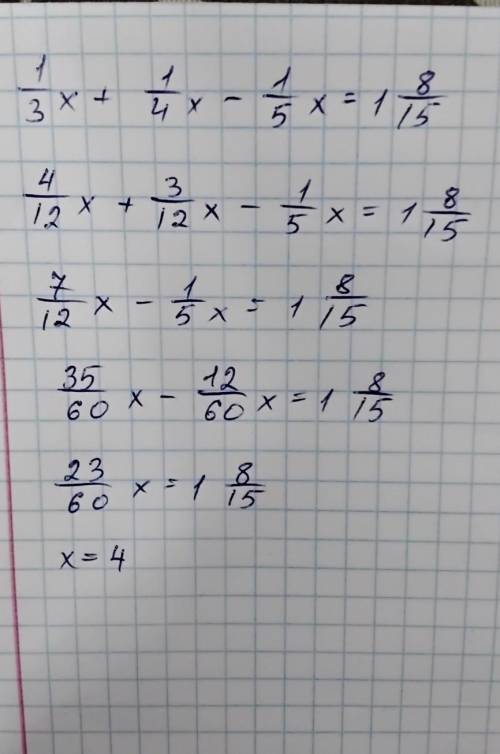 1/3 x + 1/4 x - 1/5 x = 1 8/15
4/12 x + 3/12 x - 1/5 x = 1 8/15
7/12 x - 1/5 x = 1 8/15
35/60 x - 12/60 x = 1 8/15
23/60 x = 1 8/15
x = 4